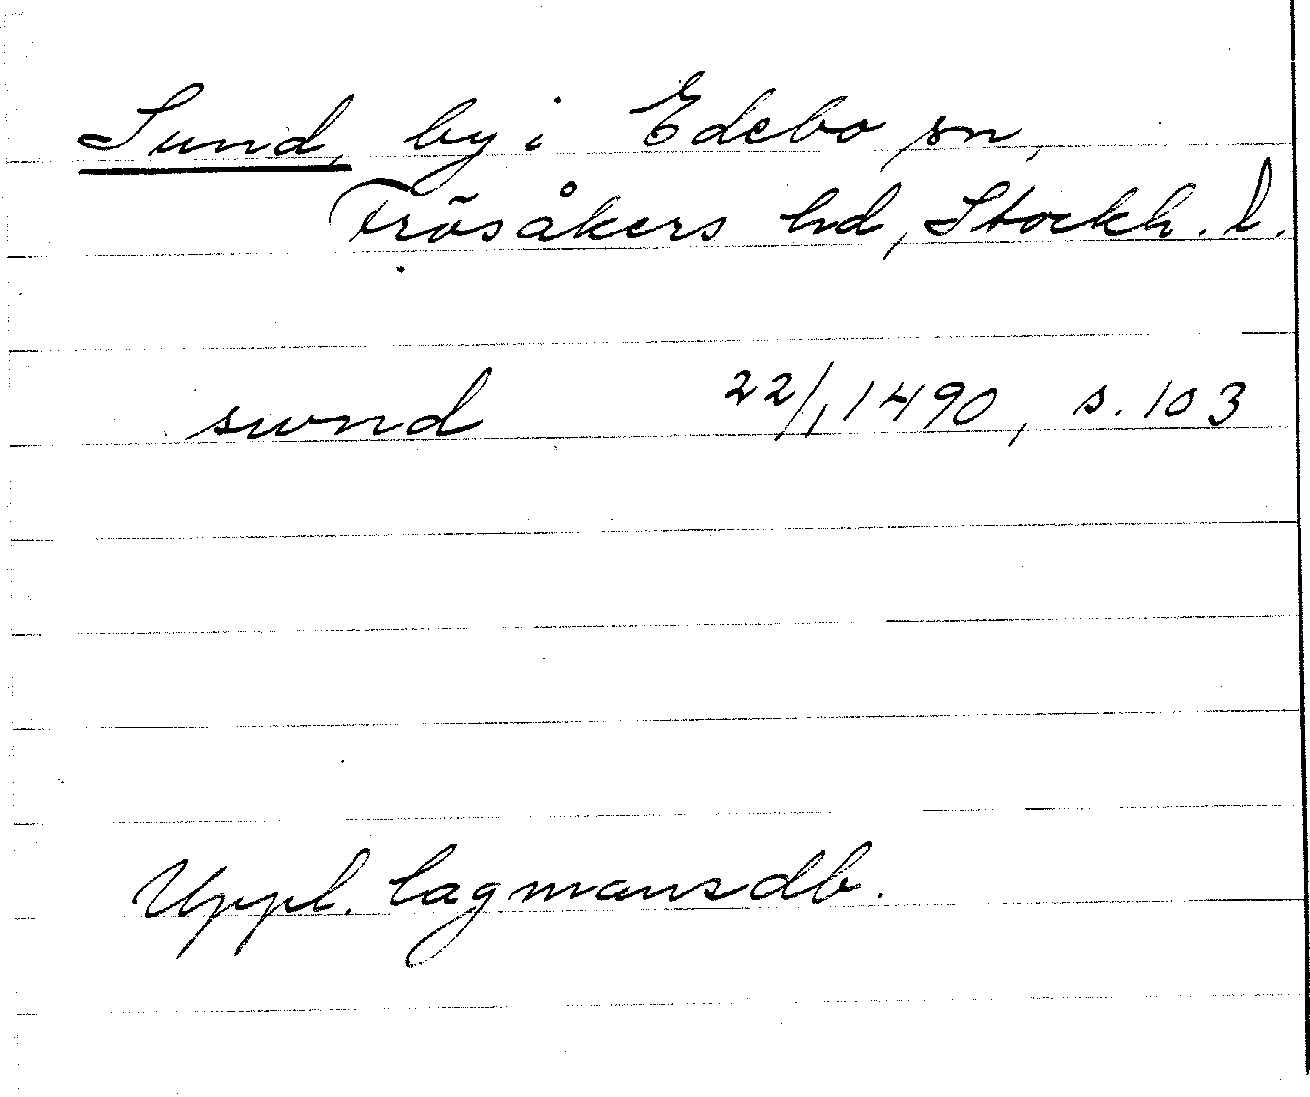 Sund, by i Edebo sn,
Frösåkers hd, Stockh. l.
swnd 22/1 1490, s. 103
Uppl. lagmansdb.